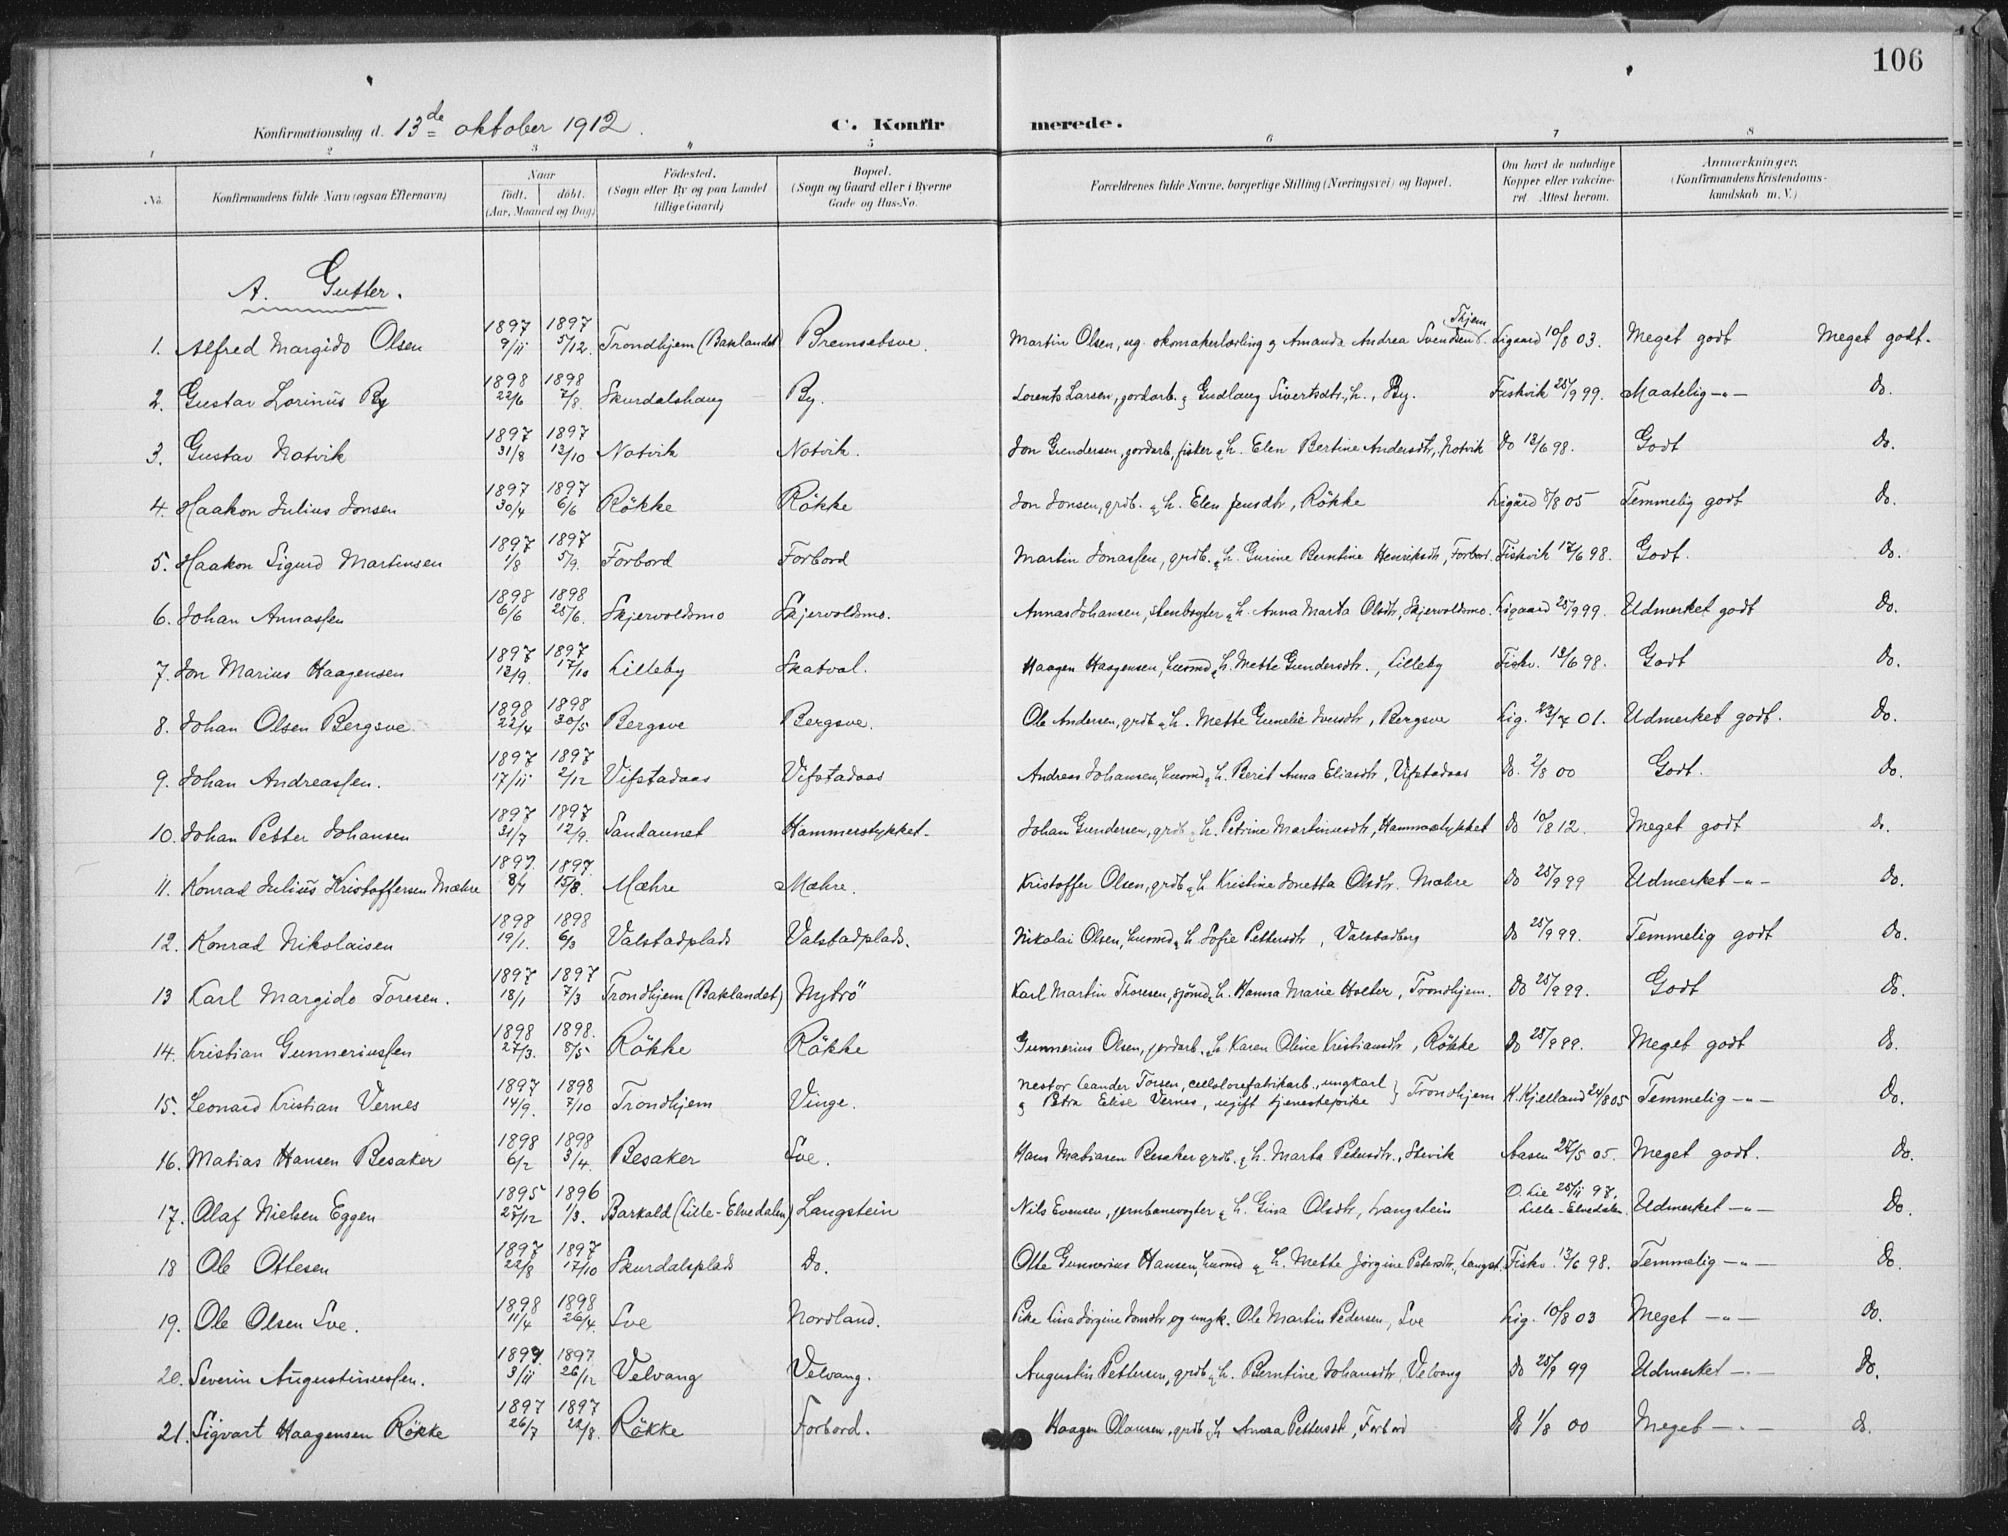 106
Konfirmationsdag d. 13de oktober 1912.
C. Konfirmerede.
1 2 3 4 5 6 7 8
No.
Konfirmandens fulde Navn (ogsaa Efternavn)
Naar
født. døbt.
(Aar, Maaned og Dag)
Fødested.
(Sogn eller By og paa Landet
tillige Gaard)
Bopæl.
(Sogn og Gaard eller i Byerne
Gade og Hus-No.
Forældrenes fulde Navne, borgerlige Stilling (Næringsvei) og Bopæl.
Om havt de naturlige
Kopper eller vakcine-
ret Attest herom.
Anmærkninger.
(Konfirmandens Kristendoms-
kundskab m. V.)
A. Gutter.
1. Alfred Margido Olsen 1897 9/11 1897 5/12. Trondhjem (Baklandet) Bremsetsve. Martin Olsen, ug. skomakerlærling & Amanda Andrea Svendsen Thjem Ligaard 10/8 03. Meget godt Meget godt.
2. Gustav Lorinius By 1898 22/6 1898 7/8. Skurdalshaug By. Lorents Larsen, jordarb. & Gudlaug Sivertsdtr., h., By. Fiskvik 25/9 99. Maatelig -"- Do.
3. Gustav Notvik 1897 31/8 1897 12/10 Notvik Notvik. Jon Gundersen, jordarb, fisker & h. Elen Bertine Andersdtr., Notvik Do 13/6 98. Godt Do.
4. Haakon Julius Jonsen 1897 30/4 1897 6/6 Rökke Rökke Jon Jonsen, grdb. & h. Elen Jensdtr, Rökke Ligård 8/8 05 Temmelig godt Do.
5. Haakon Sigurd Martinsen 1897 1/8 1897 5/9. Forbord Forbord Martin Jonassen, grdb. & h. Gurine Berntine Henriksdtr, Forbord. Fiskvik 17/6 98. Godt. Do.
6. Johan Annassen 1898 6/6 1898 25/6. Skjervoldsmo Skjervoldsmo. Annas Johansen, stenbryter & h. Anna Marta Olsdtr, Skjervoldsmo. Ligaard 25/9 99. Udmerket godt Do.
7. Jon Marius Haagensen 1897 12/9. 1897 17/10 Lilleby Skatval. Haagen Haagensen, husmd & h. Mette Gundersdtr., Lilleby Fiskv. 13/6 98. Godt Do.
8. Johan Olsen Bergsve 1898 22/4 1898 30/5 Bergsve Bergsve. Ole Andersen, grdb & h. Mette Gunelie Iversdtr, Bergsve Lig. 23/7 01. Udmerket godt. Do.
9. Johan Andreassen. 1897 17/11 1897 2/12 Vifstadaas Vifstadaas Andreas Johansen, husmd & h. Berit Anna Eliasdtr, Vifstadaas Do. 2/8 00 Godt. Do.
10. Johan Petter Johansen 1897 31/7 1897 12/9. Sandaunet Hammerstykket. Johan Gundersen, grdb & h. Petrine Martinusdtr, Hammerstykket Do 10/8 12. Meget godt Do.
11. Konrad Julius Kristoffersen Mæhre 1897. 8/7 1897. 15/8. Mæhre Mæhre. Kristoffer Olsen, grdb & h Kristine Jonetta Olsdtr. Mæhre Do 25/9 99 Udmerket -"- Do.
12. Konrad Nikolaisen 1898 19/1. 1898 6/3 Valstadplads Valstadplads. Nikolai Olsen, husmd & h Sofie Pettersdtr, Valstadberg Do 25/9 99. Temmelig godt Do.
13 Karl Margido Toresen. 1897 18/1 1897 7/3 Trondhjem (Baklandet) Nytrö Karl Martin Thoresen, sjömd & h. Hanna Marie Holter, Trondhjem. Do 25/9 99. Godt Do.
14. Kristian Gunneriussen 1898 27/3. 1898. 8/5 Rökke Rökke Gunnerius Olsen, jordarb. & h Karen Oline Kristiansdtr, Rökke Do 25/9 99. Meget godt Do.
15. Leonard Kristian Vernes 1897 14/9. 1898 7/10 Trondhjem Vinge. Nestor Leander Torsen, cellolosefabrikarb., ungkarl & Petra Elise Vernes, ugift tjenestepike } Trondhjem K. Kjelland 24/8 05 Temmelig -"- Do.
16. Matias Hansen Besaker 1898 6/2 1898 3/4. Besaker Sve. Hans Matiasen Besaker grdb. & h. Marta Petersdtr., Stevik Aasen 27/5 05. Meget godt. Do.
17. Olaf Nielsen Eggen 1895 25/12 1896 1/3. Barkald (Lille-Elvedalen) Langstein Nils Evensen, jernbanevogter & h. Gina Olsdtr, Langstein O. Lie 25/11 97. Lille-Elvedalen. Udmerket -"- Do.
18 Ole Ottesen 1897 22/8 1897 17/10 Skurdalsplads Do. Otte Gunnerius Hansen, husmd & h. Mette Jørgine Petersdtr., Langst. Fiskv. 13/6 98. Temmelig -"- Do.
19. Ole Olsen Sve. 1898 11/4 1898 26/4. Sve Nordland. Pike Lina Jørgine Jonsdtr og ungk. Ole Martin Pedersen, Sve Lig. 10/8 03 Meget -"- Do.
20. Severin Augustinussen. 1897. 3/11 1897 26/12 Velvang Velvang. Augustin Pettersen, grdb & h. Berntine Johansdtr, Velvang Do 25/9 99 Udmerket -"- Do.
21. Sigvart Haagensen Rökke 1897 26/7 1897 22/8. Rökke Forbord. Haagen Olausen, grdb & h Anna Pettersdtr, Forbord Do 1/8 00 Meget -"- Do.